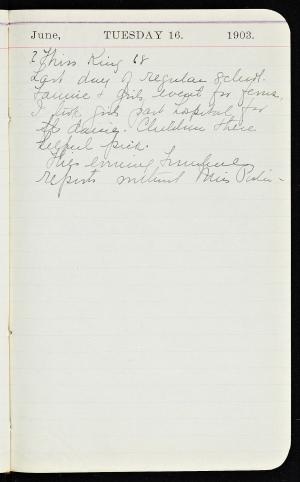 June, TUESDAY 16. 1903.
? Miss King 18
Last day of regular school.
Fannie + girls went for ferns.
I took girls past hospital for
the daisies. Children there
helped pick.
This evening
reports without Miss